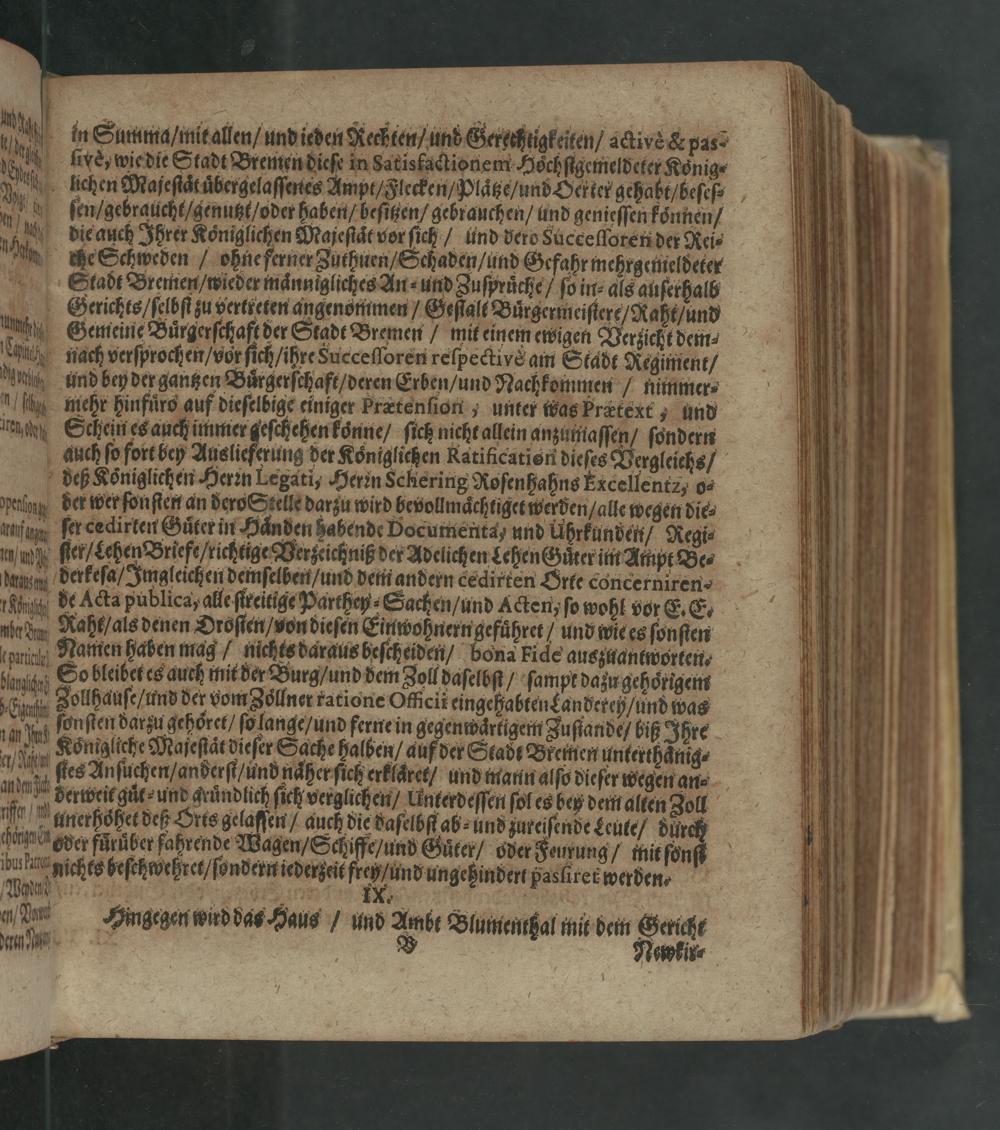 in Summa/mit allen/ und ieden Rechten/ und Gerechtigkeiten/ activè & pas-
sivè, wie die Stadt Bremen diese in Satisfactionem Höchstgemeldeter König-
lichen Majestät übergelassenes Ampt/Flecken/Plätze/und Oerter gehabt/beses-
sen/gebraucht/genutzt/oder haben/ besitzen/ gebrauchen/ und geniessen können/
die auch Ihrer Königlichen Majestät vor sich / und dero Successoren der Rei-
che Schweden / ohne ferner Zuthuen/Schaden/und Gefahr mehrgemeldeter
Stadt Bremen/wieder männigliches An- und Zusprüche/ so in- als auserhalb
Gerichts/selbst zu vertreten angenommen / Gestalt Bürgermeistere/Raht/und
Gemeine Bürgerschaft der Stadt Bremen / mit einem ewigen Verzicht dem-
nach versprochen/vor sich/ihre Successoren respectivè am Stadt Regiment/
und bey der gantzen Bürgerschaft/deren Erben/und Nachkommen / nimmer-
mehr hinfüro auf dieselbige einiger Prætension, unter was Prætext, und
Schein es auch immer geschehen könne/ sich nicht allein anzumassen/ sondern
auch so fort bey Auslieferung der Königlichen Ratification dieses Vergleichs/
deß Königlichen Herrn Legati, Herrn Schering Rosenhahns Excellentz, o-
der wer sonsten an dero Stelle darzu wird bevollmächtiget werden/alle wegen die-
ser cedirten Güter in Händen habende Documenta, und Uhrkunden/ Regi-
ster/Lehen Briefe/richtige Verzeichniß der Adelichen Lehen Güter im Ampt Be-
derkesa/Imgleichen demselben/und dem andern cedirten Orte concerniren-
de Acta publica, alle streitige Parthey-Sachen/und Acten, so wohl vor E. E.
Raht/als denen Drosten/von diesen Einwohnern geführet / und wie es sonsten
Namen haben mag / nichts daraus bescheiden/ bona Fide auszuantworten.
So bleibet es auch mit der Burg/und dem Zoll daselbst/ sampt dazu gehörigem
Zollhause/und der vom Zöllner ratione Officii eingehabten Länderey/und was
sonsten darzu gehöret/ so lange/und ferne in gegenwärtigem Zustande/ biß Ihre
Königliche Majestät dieser Sache halben/ auf der Stadt Bremen unterthänig-
stes Ansuchen/anderst/und näher sich erkläret/ und mann also dieser wegen an-
derweit güt- und gründlich sich verglichen/ Unterdessen sol es bey dem alten Zoll
unerhöhet deß Orts gelassen / auch die daselbst ab- und zureisende Leute/ durch
oder fürüber fahrende Wagen/Schiffe/und Güter/ oder Feurung/ mit sonst
nichts beschwehret/sondern iederzeit frey/und ungehindert passiret werden.
IX.
Hingegen wird das Haus / und Ambt Blumenthal mit dem Gericht
V
Newkir-